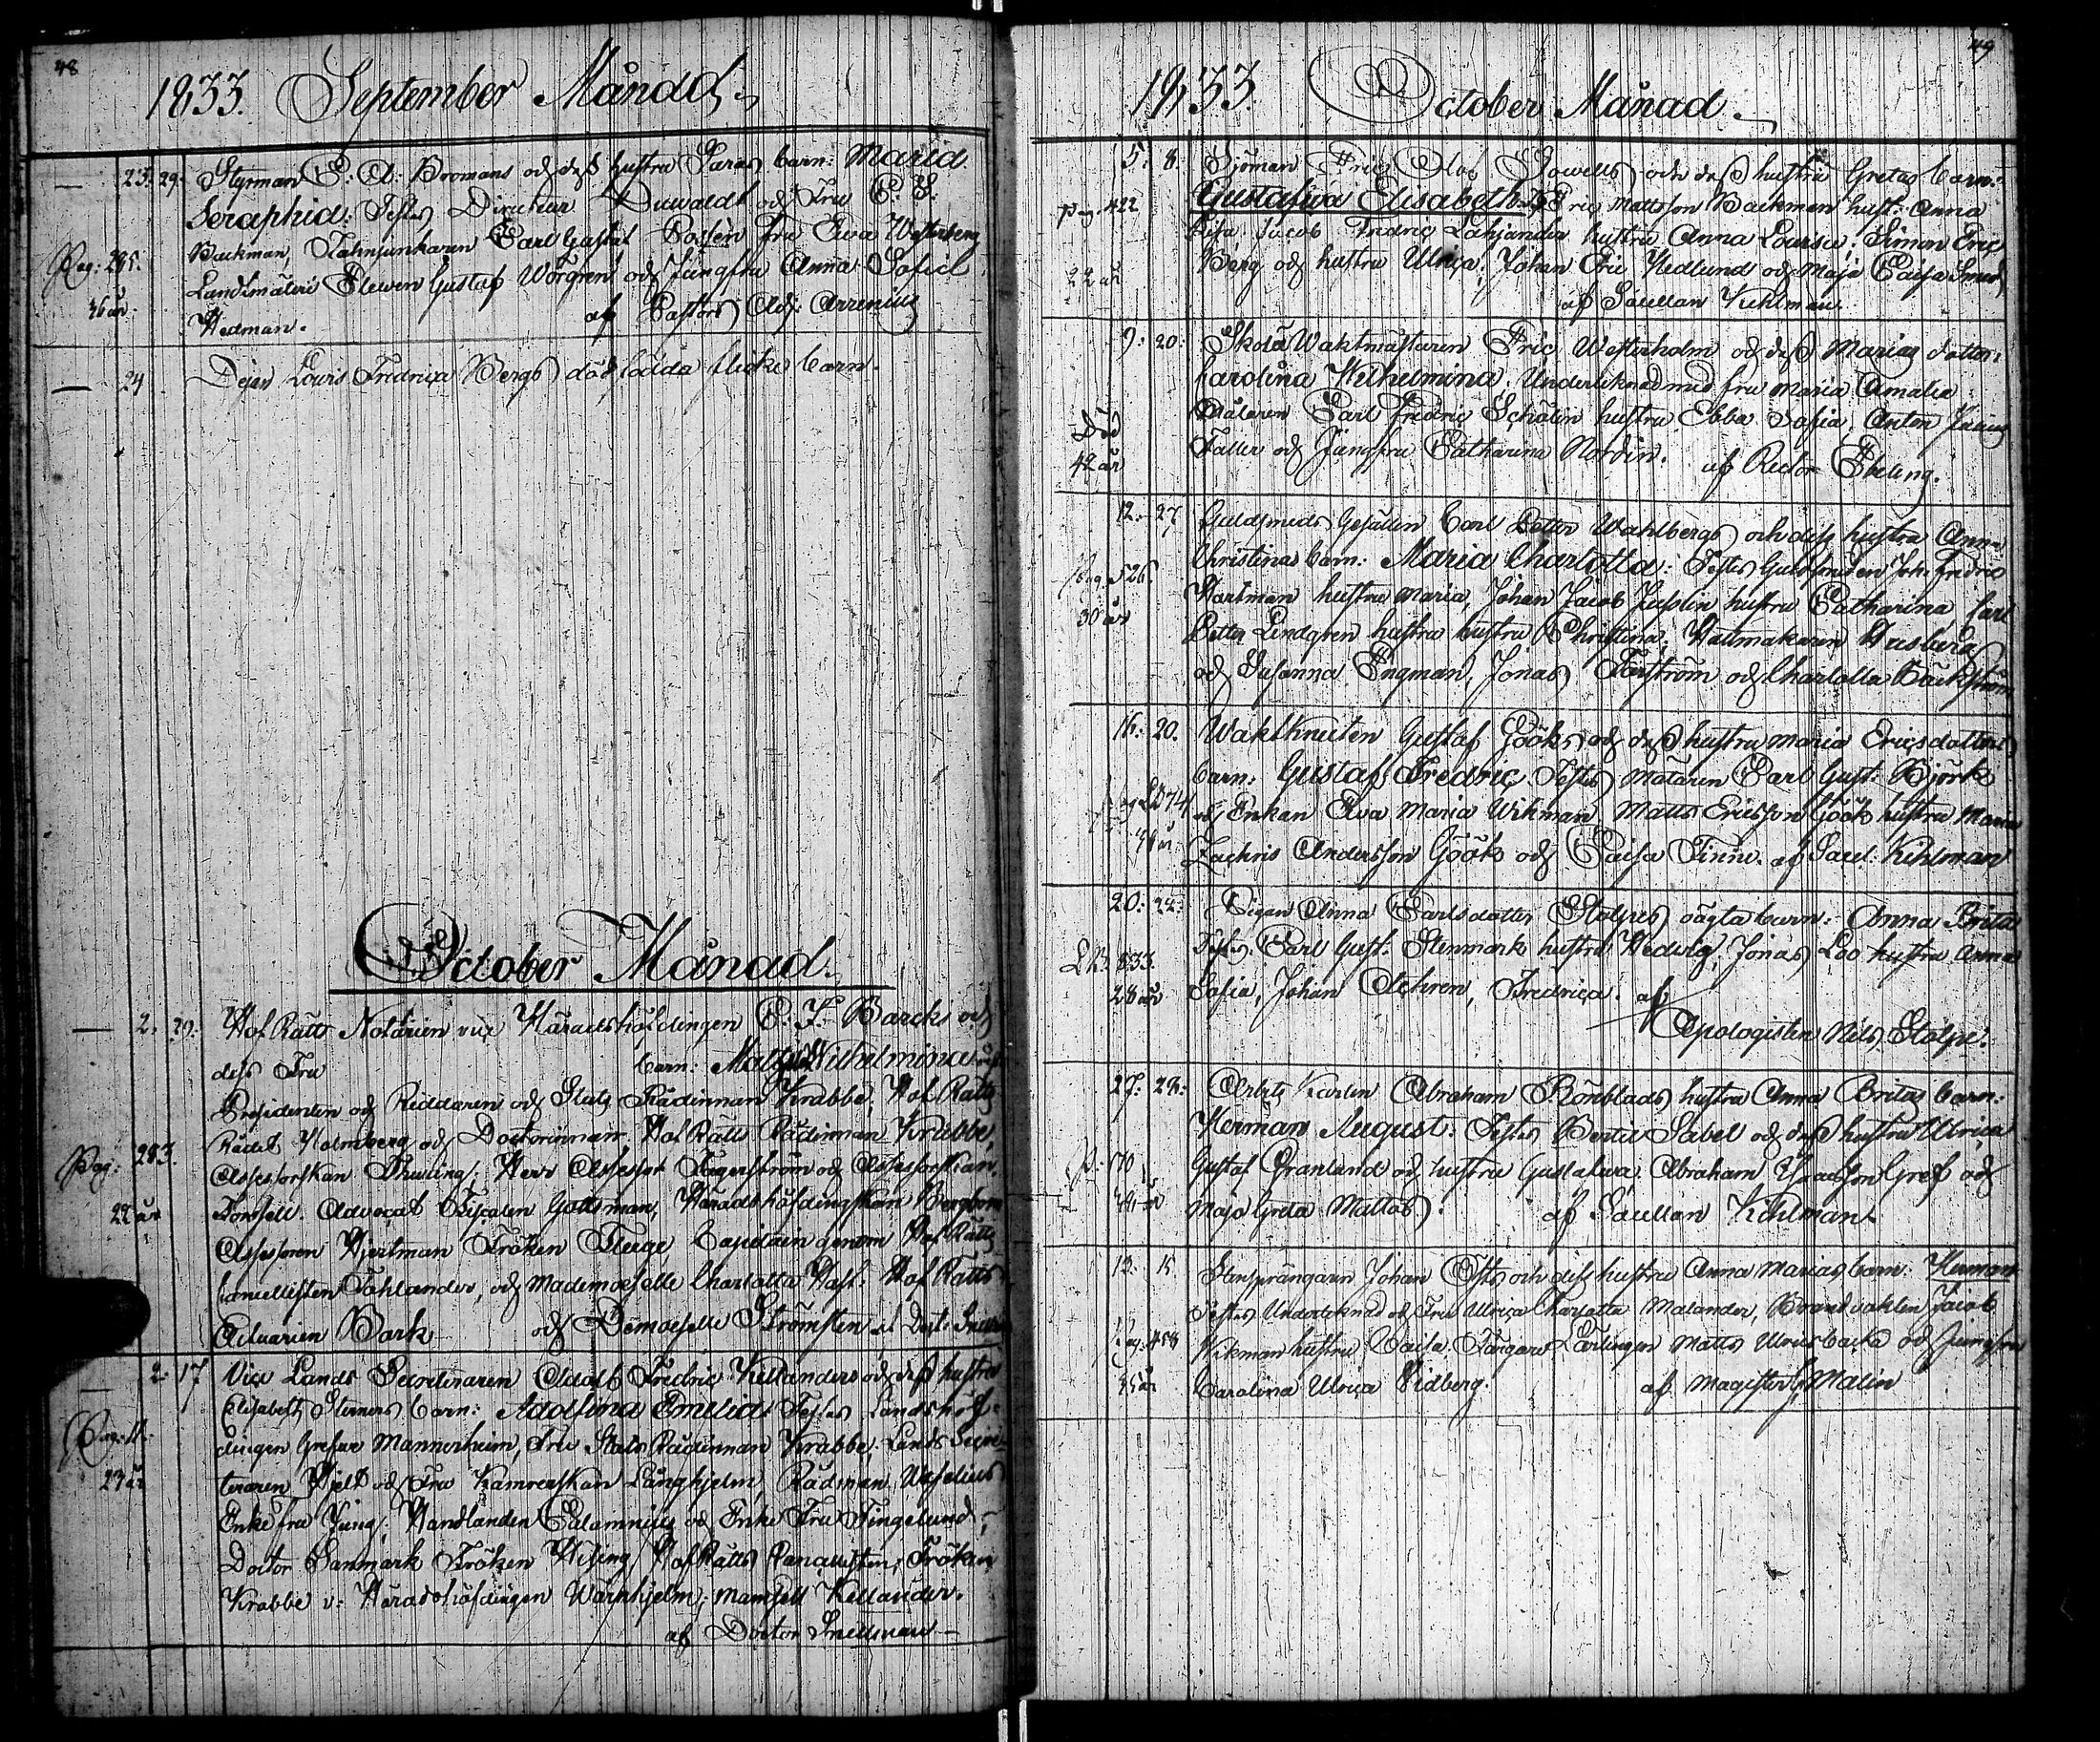 48
1833. September Månad.
23. 29. Styrman E: A: Bromans och dess hustru Saras barn: Maria
Seraphia: Testes Directeur Duwaldt och Fru C: E:
Pag: 285. Backman, Fahnjunkaren Carl Gustaf Fru Eva Westerberg
36 år. Landtmäteri Eleven Gustaf och Jungfru Anna Sofia
Hedman. af Pastors Adj: Arrenius
24 Dejan Lovis Fredrica Bergs död födda flicke barn.
October Månad.
2. 20. Hof Rätts Notarien vice Häradshöfdingen E. F. Barcks och
dess Fru barn: Wilhelmina
Presidenten och Riddaren och Stats Rådinnan Krabbe, Hof Rätts
Pag: 283. Rådet Holmberg och Doctorinnan Hof Rätts Rådinnan Krabbe,
Assessorskan Thuring; Herr Assessor Fogerström och Assessorskan
22 år Forssell. Advocat Fiscalen Gottsman, Häradshöfdingskan Bergbom
Assessoren Hjertman Fröken Fleege Capitain genom Hof Rätts
Cancellisten Fahlander, och Mademoiselle Charlotta Hof Rätts
Actuarien Bark och Demoiselle Strömsten af Doct:
2. 17 Vice Lands Secreteraren Adolf Fredric Kellanders och dess hustru
Elisabeth Sterners barn: Adolfina Emelia: Testes Landshöf-
Pag: dingen Grefve Mannerheim, Fru Stats Rådinnan Krabbe: Lands Secre-
23 år teraren Hjelt och Fru Kamrerskan Långhjelm, Rådman Waselius
Enke fru Jung, Handlanden Calamnius och Enke Fru Tingelund;
Doctor Sanmark Fröken Wising Hof Rätts Cancellisten, Fröken
Krabbe v: Häradshöfdingen Wärnhjelm; Mamsell Kellander.
af Doctor Snellman
49
1833. October Månad.
5. 8. Sjöman Eric Olof Sowells och dess hustru Gretas barn:
Pag. 422 Gustafwa Elisabeth. T: Eric Mattsson Backman hust: Anna
Lisa Jacob Fredric Lohjander hustru Anna Lovisa; Simon Eric
22 år Berg och hustru Ulrica; Johan Eric Hedlund och Maja Caisa Smed
af Saccellan Kihlman.
9. 20. Skola Waktmästaren Eric Westerholm och dess Marias dotter:
Carolina Wilhelmina. Undertecknad med fru Maria Amalia
Död Målaren Carl Fredric Schölin hustru Ebba Sofia. Anton
42 år Faller och Jungfru Catharina Nordin. af Rector Ebeling.
12. 27 Guldsmeds Gesällen Carl Petter Wahlbergs och dess hustru Anna
Christinas barn: Maria Charlotta: Testes Guldsmeden Joh: Fredric
Pag 526. Hartman hustru Maria, Johan Jacob Jusslin hustru Catharina, Carl
30 år Petter Lindgren hustru hustru Christina; Hattmakaren Husberg
och Susanna Engman, Jonas Forsström och Charlotta Backström
16. 20. Waktknuten Gustaf Gööks och dess hustru Maria Ericsdotters
barn: Gustaf Fredric. Testes Mätaren Carl Gust: Björk
och Enkan Eva Maria Wikman. Matts Ericsson Göök hustru Maria
Zachris Andersson Göök och Caisa Finne. af Sacel: Kihlman
20. 22. Pigan Anna Carlsdotter Stolpes oägta barn: Anna Brita
LB. 833. Testes Carl Gust: Stenmark hustru Hedvig, Jonas Loo hustru Anna
28 år Sofia, Johan Achren, Fredrica. af
Apologisten Nils Stolpe.
27. 28: Arbets Karlen Abraham Rönblads hustru Anna Britas barn:
Herman August: Testes Bertil Sabel och dess hustru Ulrica
P: 170 Gustaf Granlund och hustru Gustafwa. Abraham Isaacsson Gref och
44 år Maja Greta Mattas. af Sacellan Kihlman.
12. 15. Stensprängaren Johan Östs och dess hustru Anna Marias barn. Herman
Testes Undertecknad och Fru Ulrica Charlotta Malander, Brandvakten Jacob
Pag: 458 Wikman hustru Caisa. Färgare Lärlingen Matts Ulricsbacka och Jungfru
35 år Carolina Ulrica Widberg. af Magister Malin